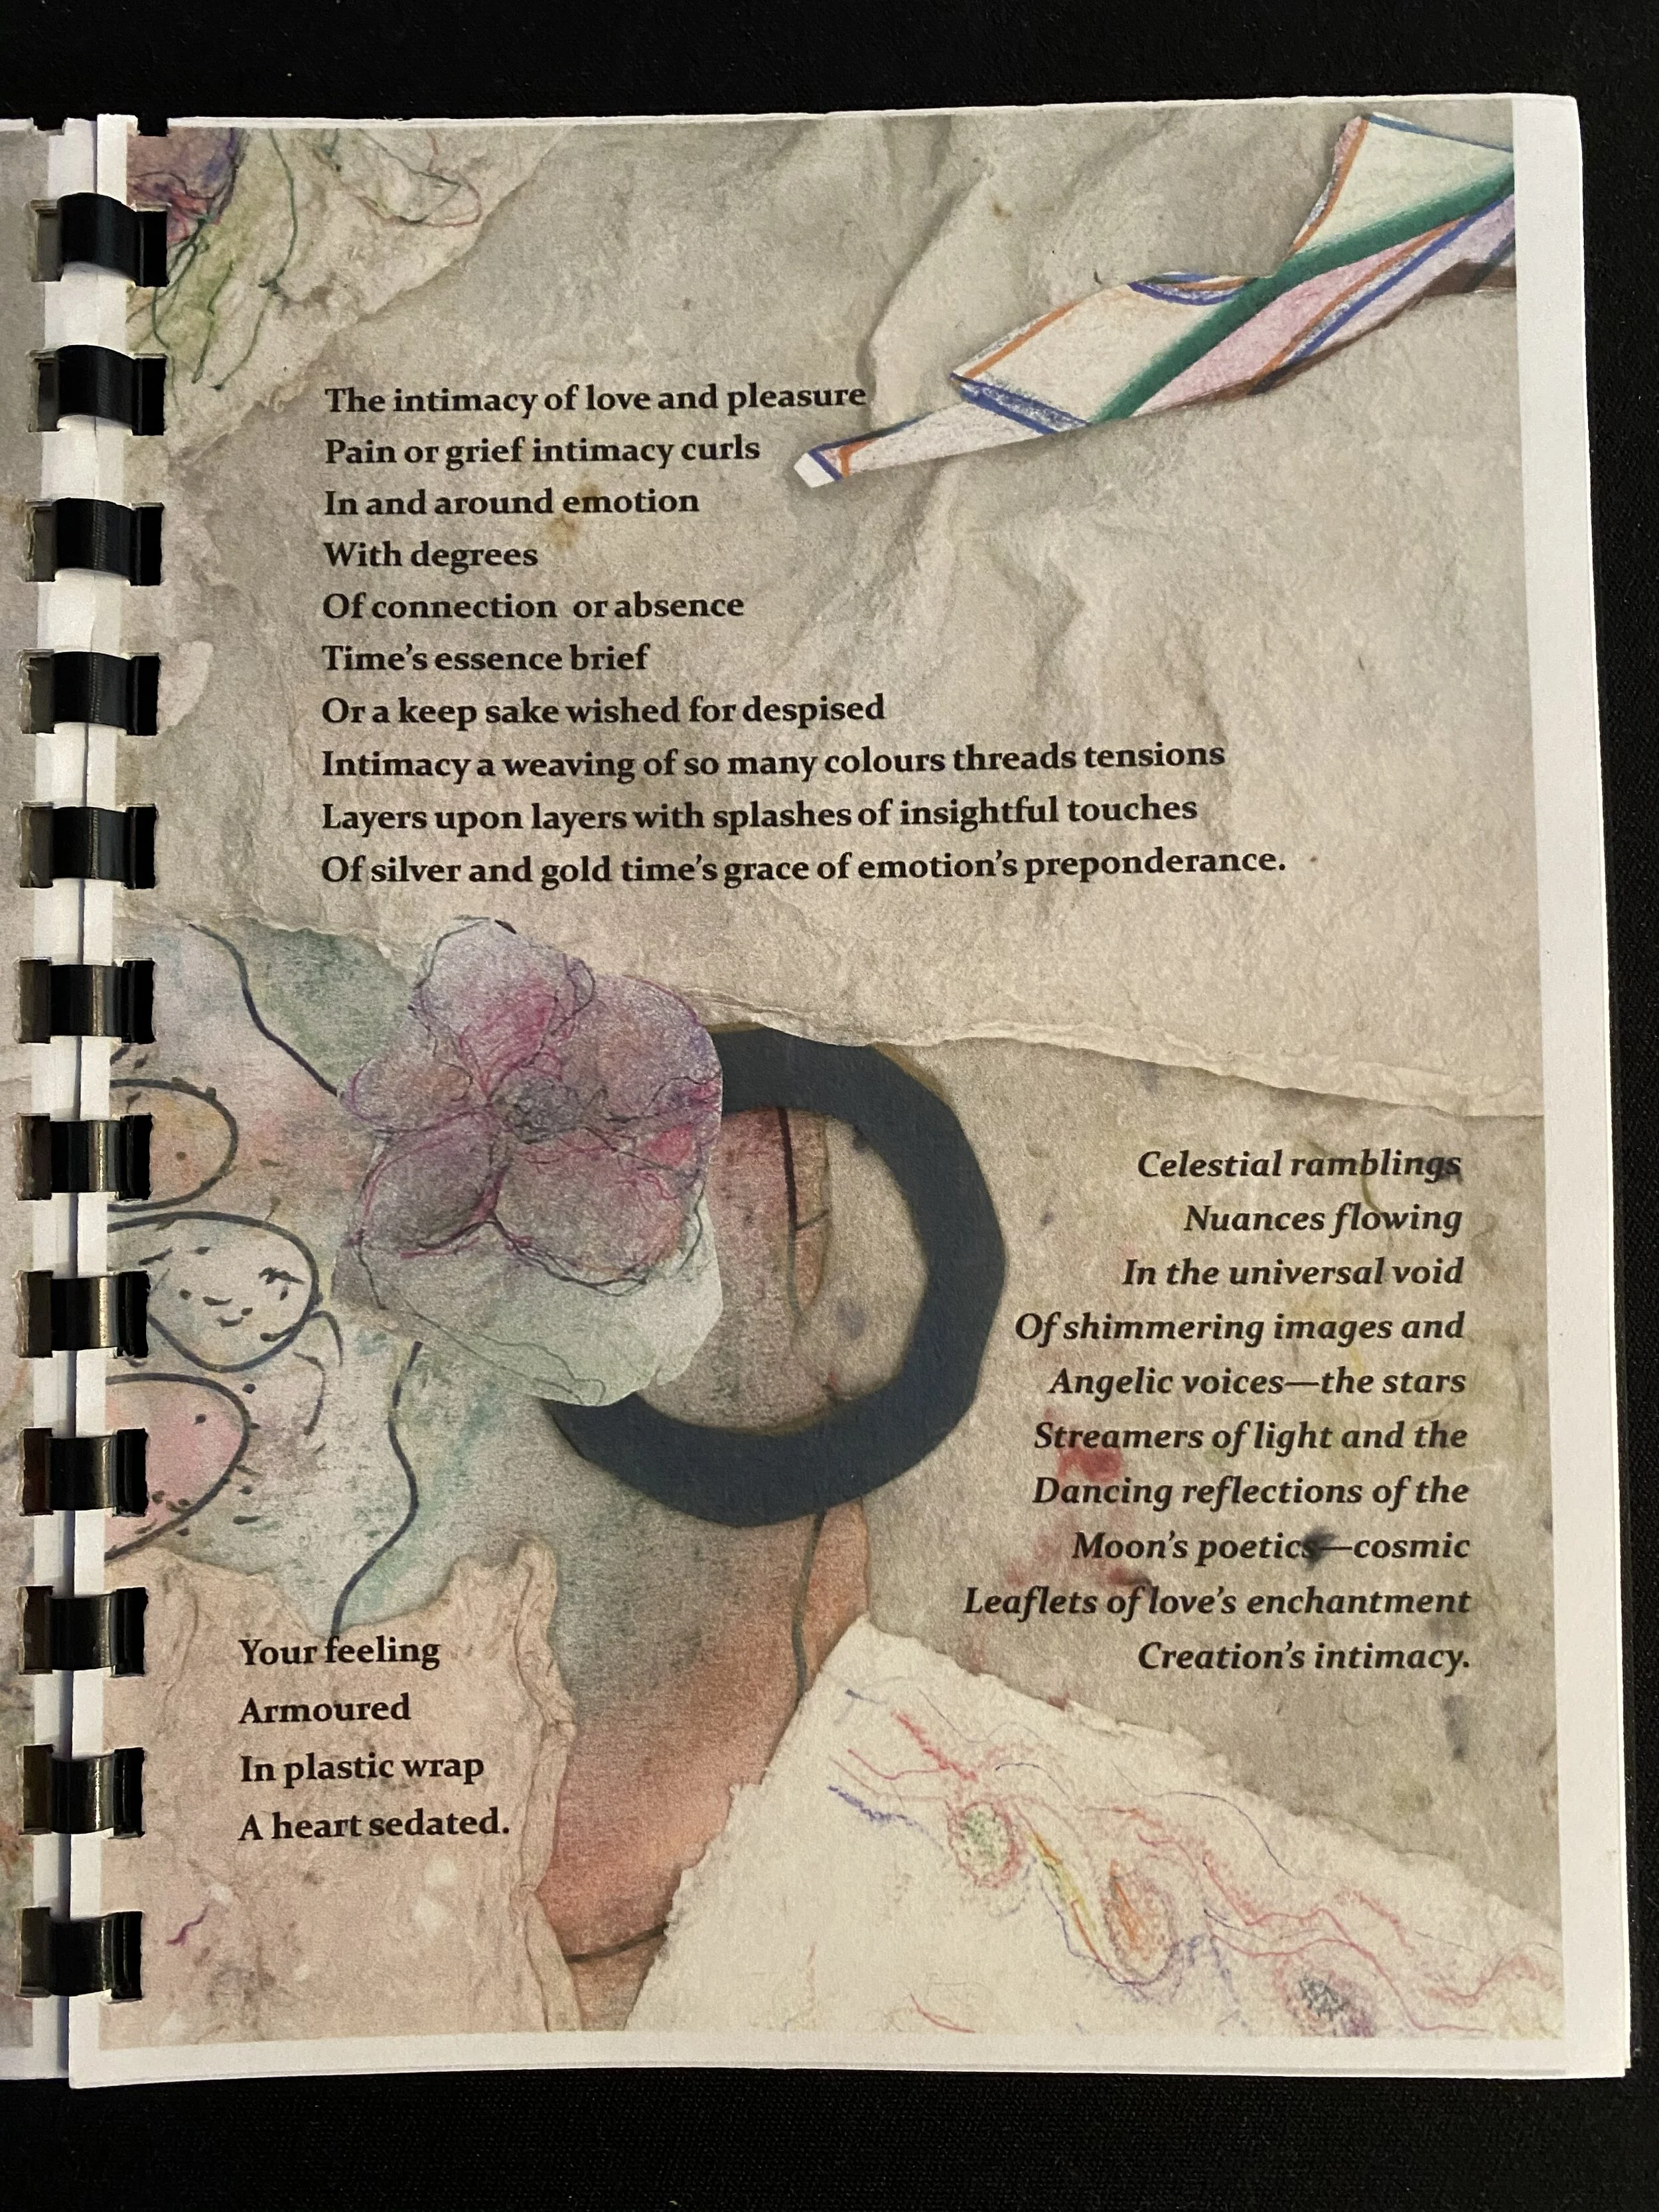 The intimacy of love and pleasure
Pain or grief intimacy curls
In and around emotion
With degrees
Of connection or absence
Time's essence brief
Or a keep sake wished for despised
Intimacy a weaving of so many colours threads tensions
Layers upon layers with splashes of insightful touches
Of silver and gold time's grace of emotion's preponderance.
Celestial ramblings
Nuances flowing
In the universal void
Of shimmering images and
Angelic voices—the stars
Streamers of light and the
Dancing reflections of the
Moon's poetics—cosmic
Leaflets of love's enchantment
Creation's intimacy.
Your feeling
Armoured
In plastic wrap
A heart sedated.